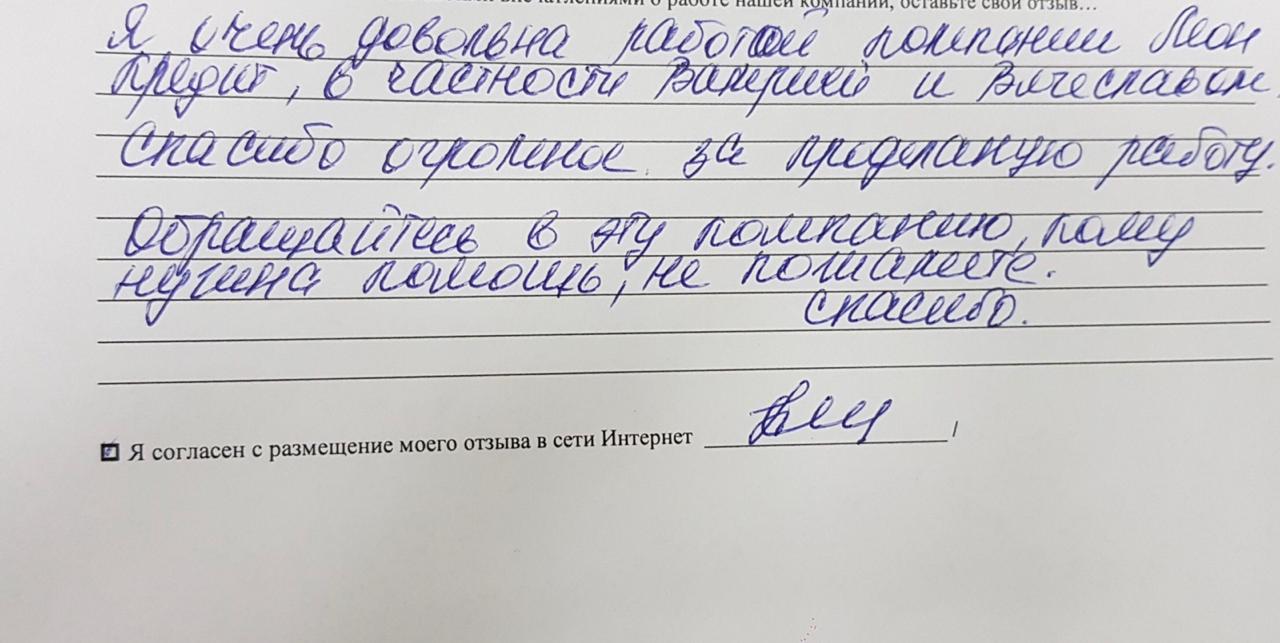 впечатлениями о работе нашей компании, оставьте свой отзыв...
Я очень довольна работой компании Леон
Кредит, в частности Валерией и Вячеславом.
Спасибо огромное за проделаную работу.
Обращайтесь в эту компанию, кому
нужна помощь, не пожалеете.
Спасибо.
Я согласен с размещение моего отзыва в сети Интернет /